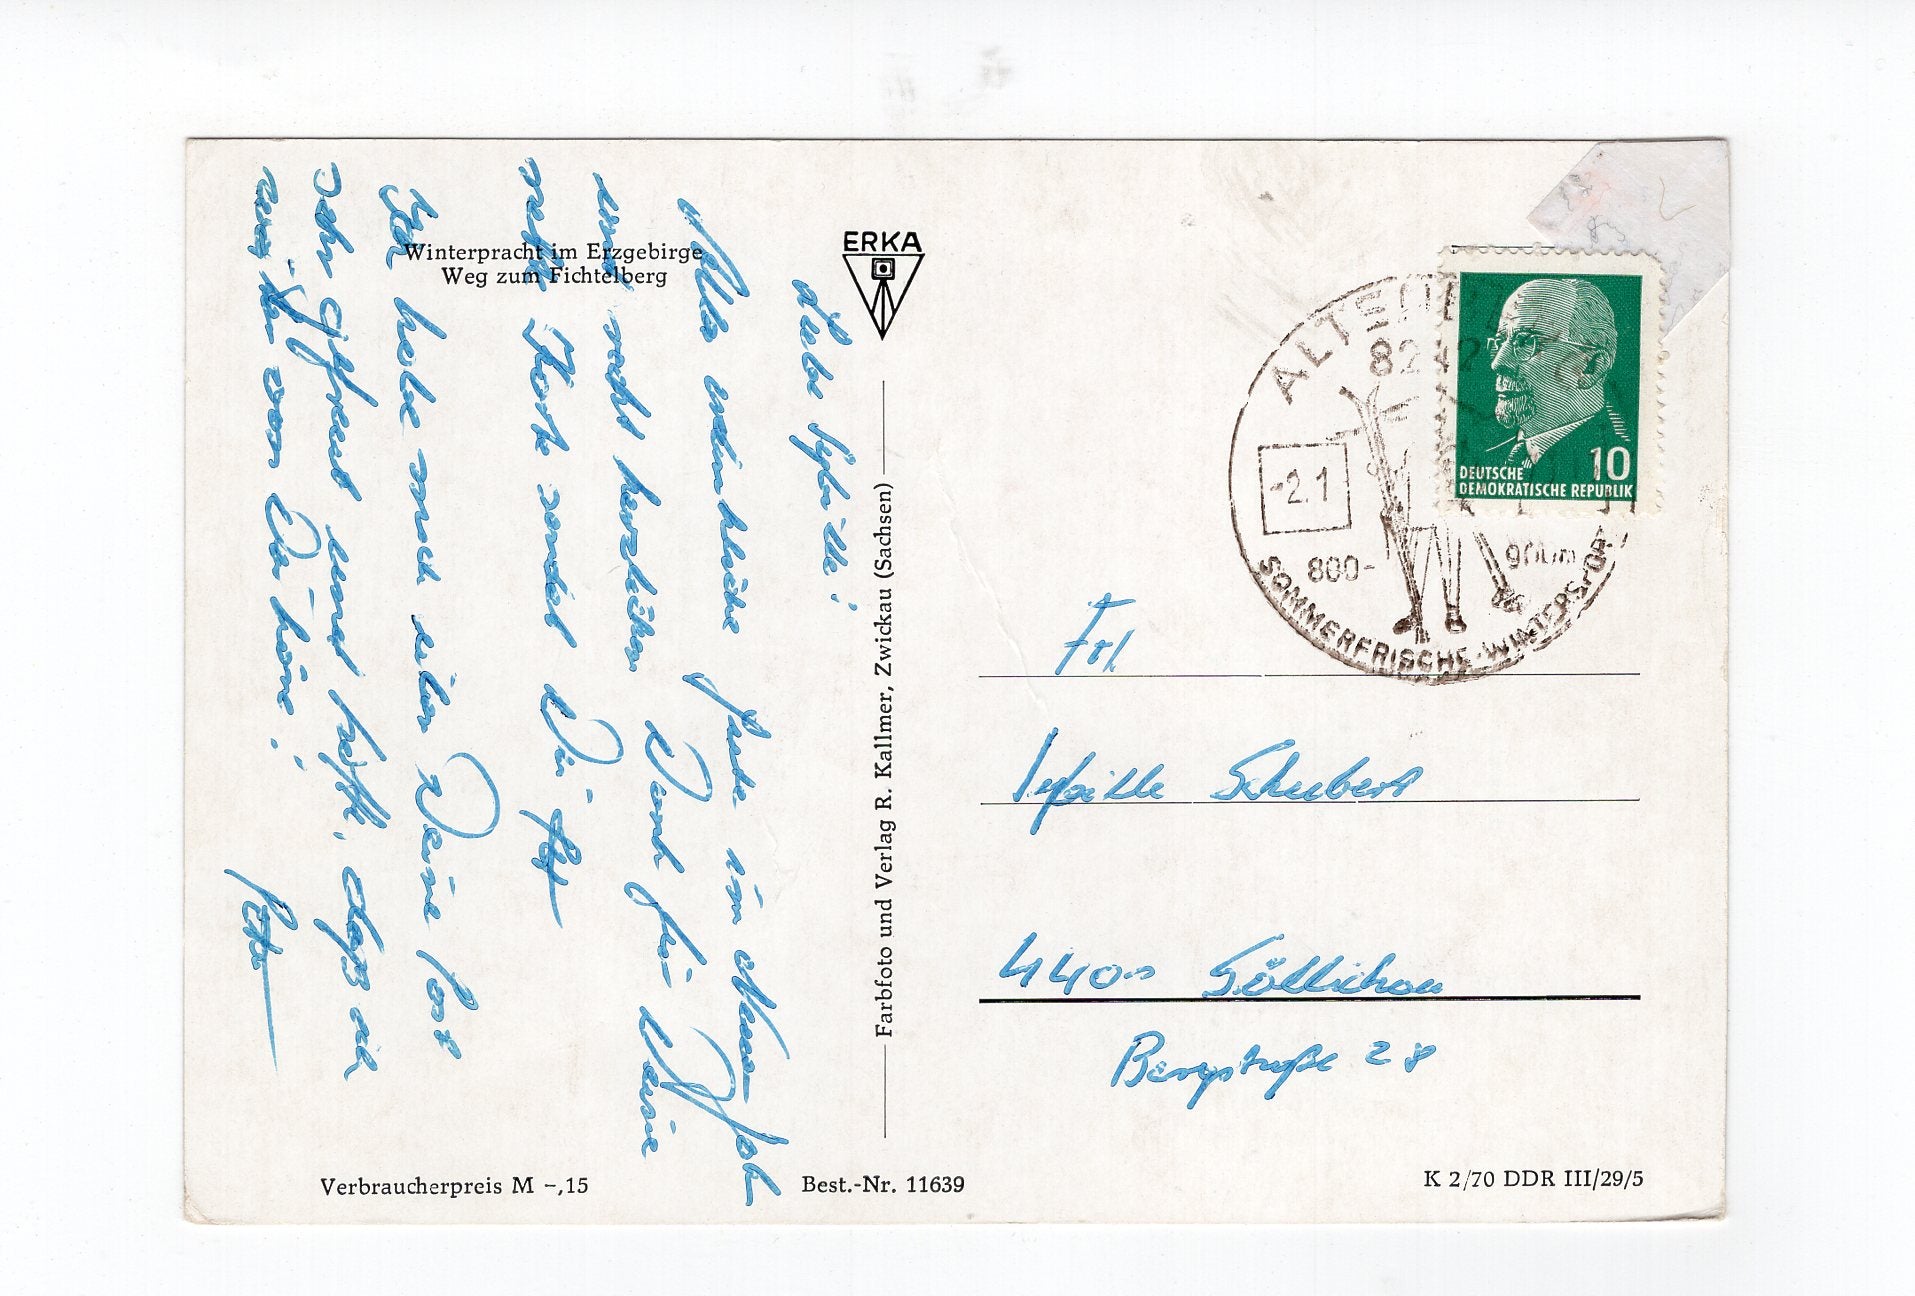 Winterpracht im Erzgebirge
Weg zum Fichtelberg
ERKA
Liebe Sybille!
Alles erdenkliche Gute im Neuen Jahr
und recht herzlichen Dank für Deine
nette Karte sendet Dir
Ich habe mich über Deine Post
sehr gefreut und hoffe, daß ich
mal von Dir höre!
Peter
Farbfoto und Verlag R. Kallmer, Zwickau (Sachsen)
Verbraucherpreis M –,15
Best.-Nr. 11639
ALTENBERG
8242
-2.1
800-
900m
SOMMERFRISCHE-WINTERSPORT
10
DEUTSCHE
DEMOKRATISCHE REPUBLIK
Frl.
Sybille Schubert
4400 Göttlichau
Bergstraße 28
K 2/70 DDR III/29/5